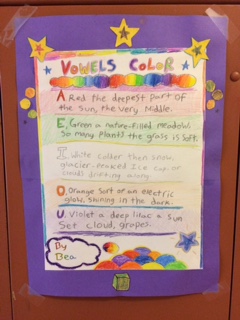 VOWELS COLOR
A Red the deepest part of
the Sun, the very Middle.
E, Green a nature-filled meadow,
So many plants the grass is soft.
I White colder then snow,
glacier-peaked Ice cup, or
clouds drifting along
O, Orange Sort of an electric
glow, shining in the dark.
U, Violet a deep lilac a sun
Set cloud, grapes.
By
Bea